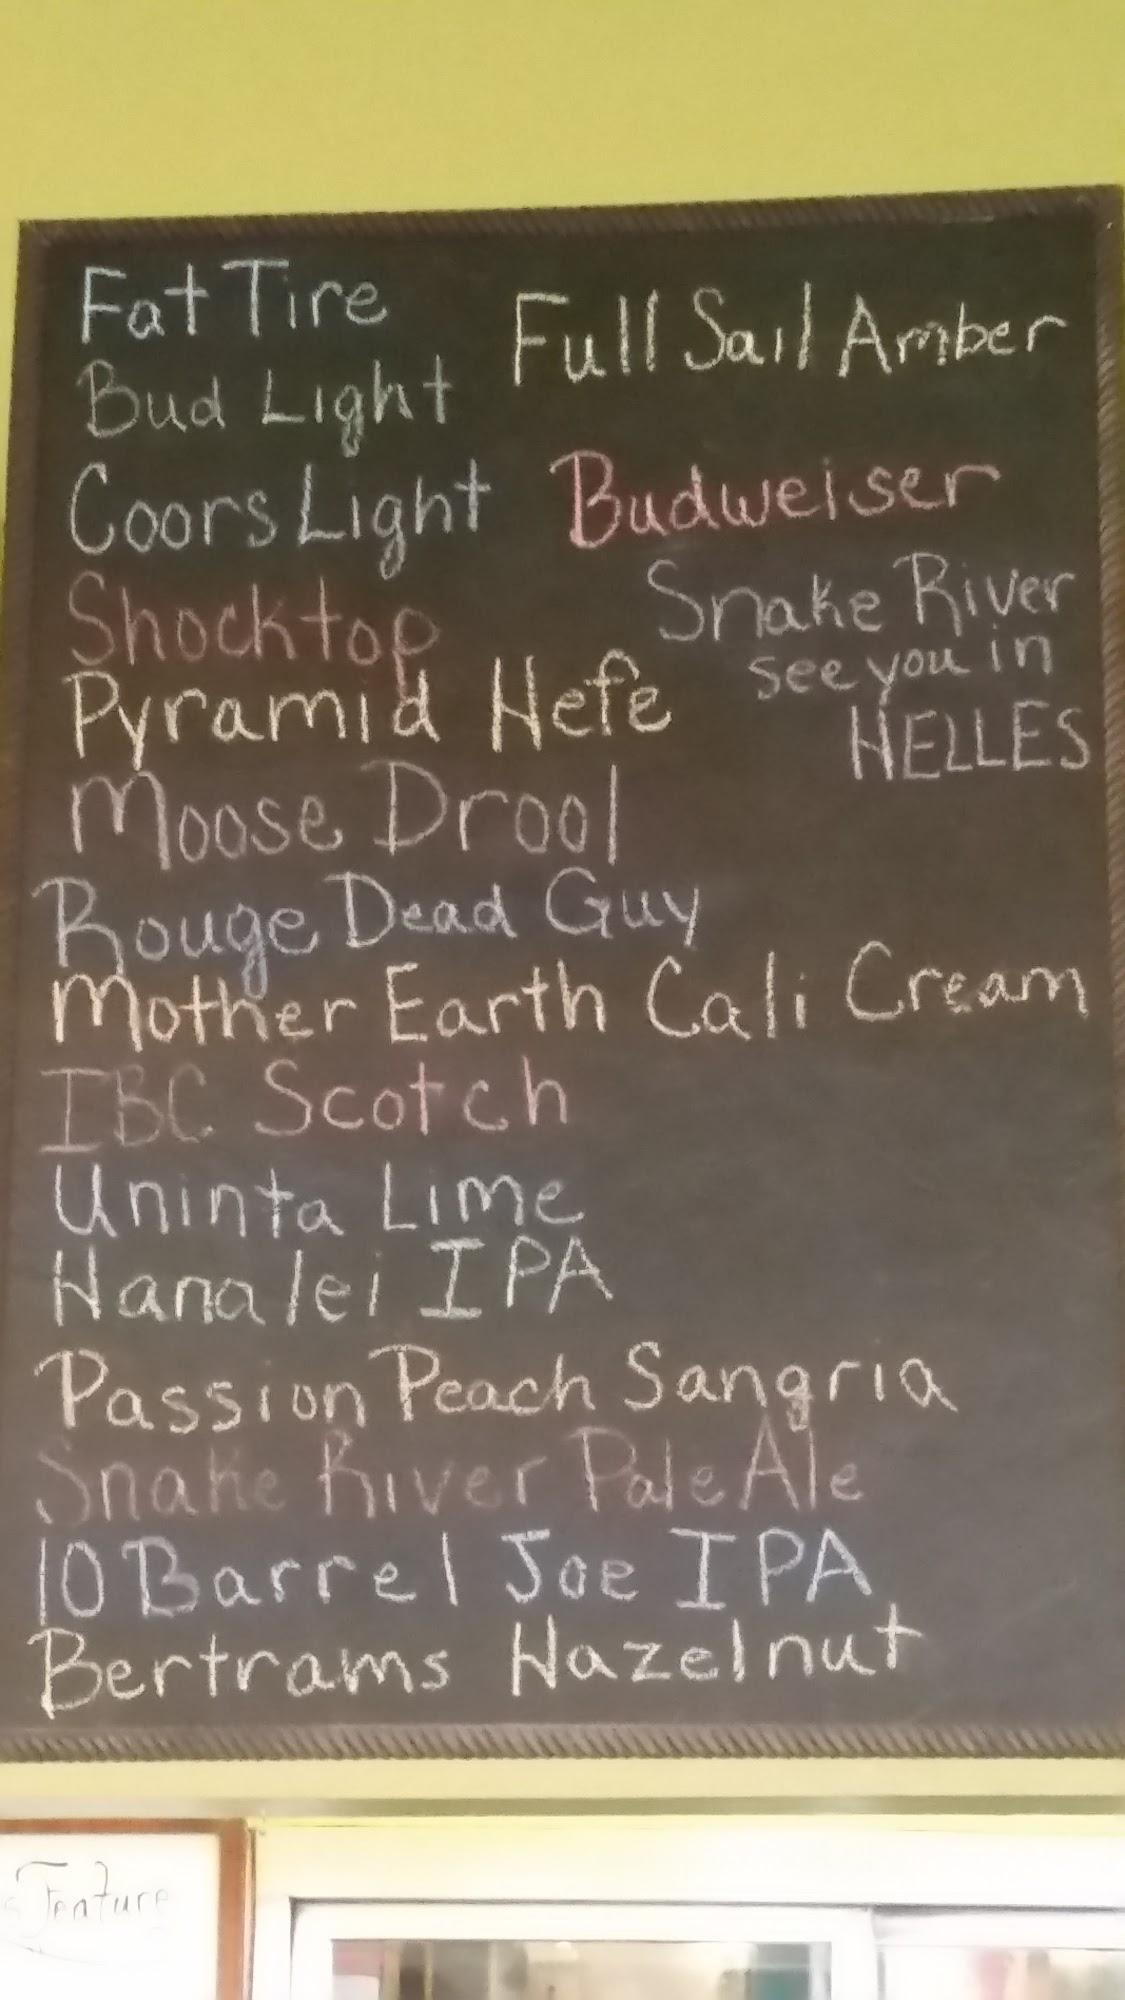 Fat Tire
Full Sail Amber
Bud Light
Coors Light
Budweiser
Shocktop
Snake River
see you in
HELLES
Pyramid Hefe
Moose Drool
Rouge Dead Guy
Mother Earth Cali Cream
IBC Scotch
Uninta Lime
Hanalei IPA
Passion Peach Sangria
Snake River Pale Ale
10 Barrel Joe IPA
Bertrams Hazelnut
Feature